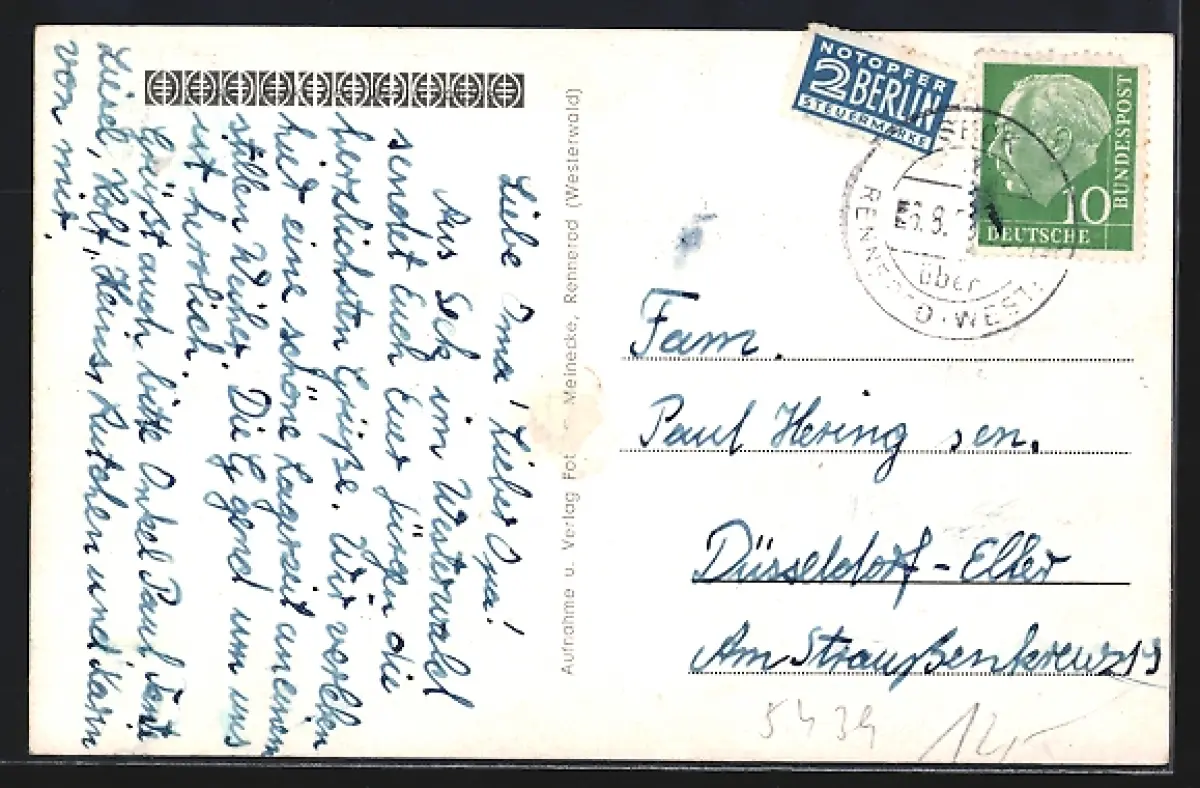 Liebe Oma! Lieber Opa!
Aus Seck im Westerwald
sendet Euch Euer Jürgen die
herzlichsten Grüße. Wir verleben
hier eine schöne Lagerzeit an einem
stillen Weiher. Die Gegend um uns
ist herrlich.
Grüßt auch bitte Onkel Paul Tante
Liesel, Rolf, Heinz, Rutchen und Karin
von mir.
Aufnahme u. Verlag Fot Meinecke, Rennerod (Westerwald)
NOTOPFER
2 BERLIN
STEUERMARKE
DEUTSCHE
BUNDESPOST
10
über
RENNEROD · WEST
Fam.
Paul Hering sen.
Düsseldorf-Eller
Am Straußenkreuz 19
5439
12,-